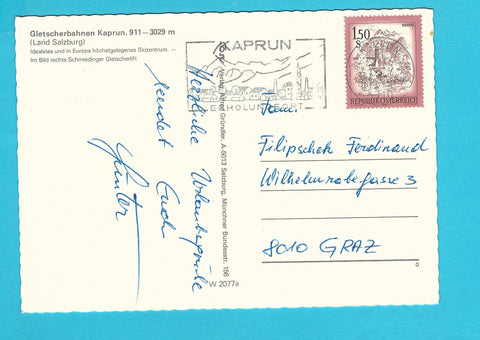 Gletscherbahnen Kaprun, 911—3029 m
(Land Salzburg)
Idealstes und in Europa höchstgelegenes Skizentrum. —
Im Bild rechts Schmiedinger Gletscherlift
Herzliche Urlaubsgrüße
sendet Euch
Günter
Verlag Alfred Gründler, A-5013 Salzburg, Münchner Bundesstr. 156
W 2077a
KAPRUN
ERHOLUNGSORT
1.50
S
REPUBLIK ÖSTERREICH
Fam.
Filipschek Ferdinand
Wilhelm-rabegasse 3
8010 GRAZ